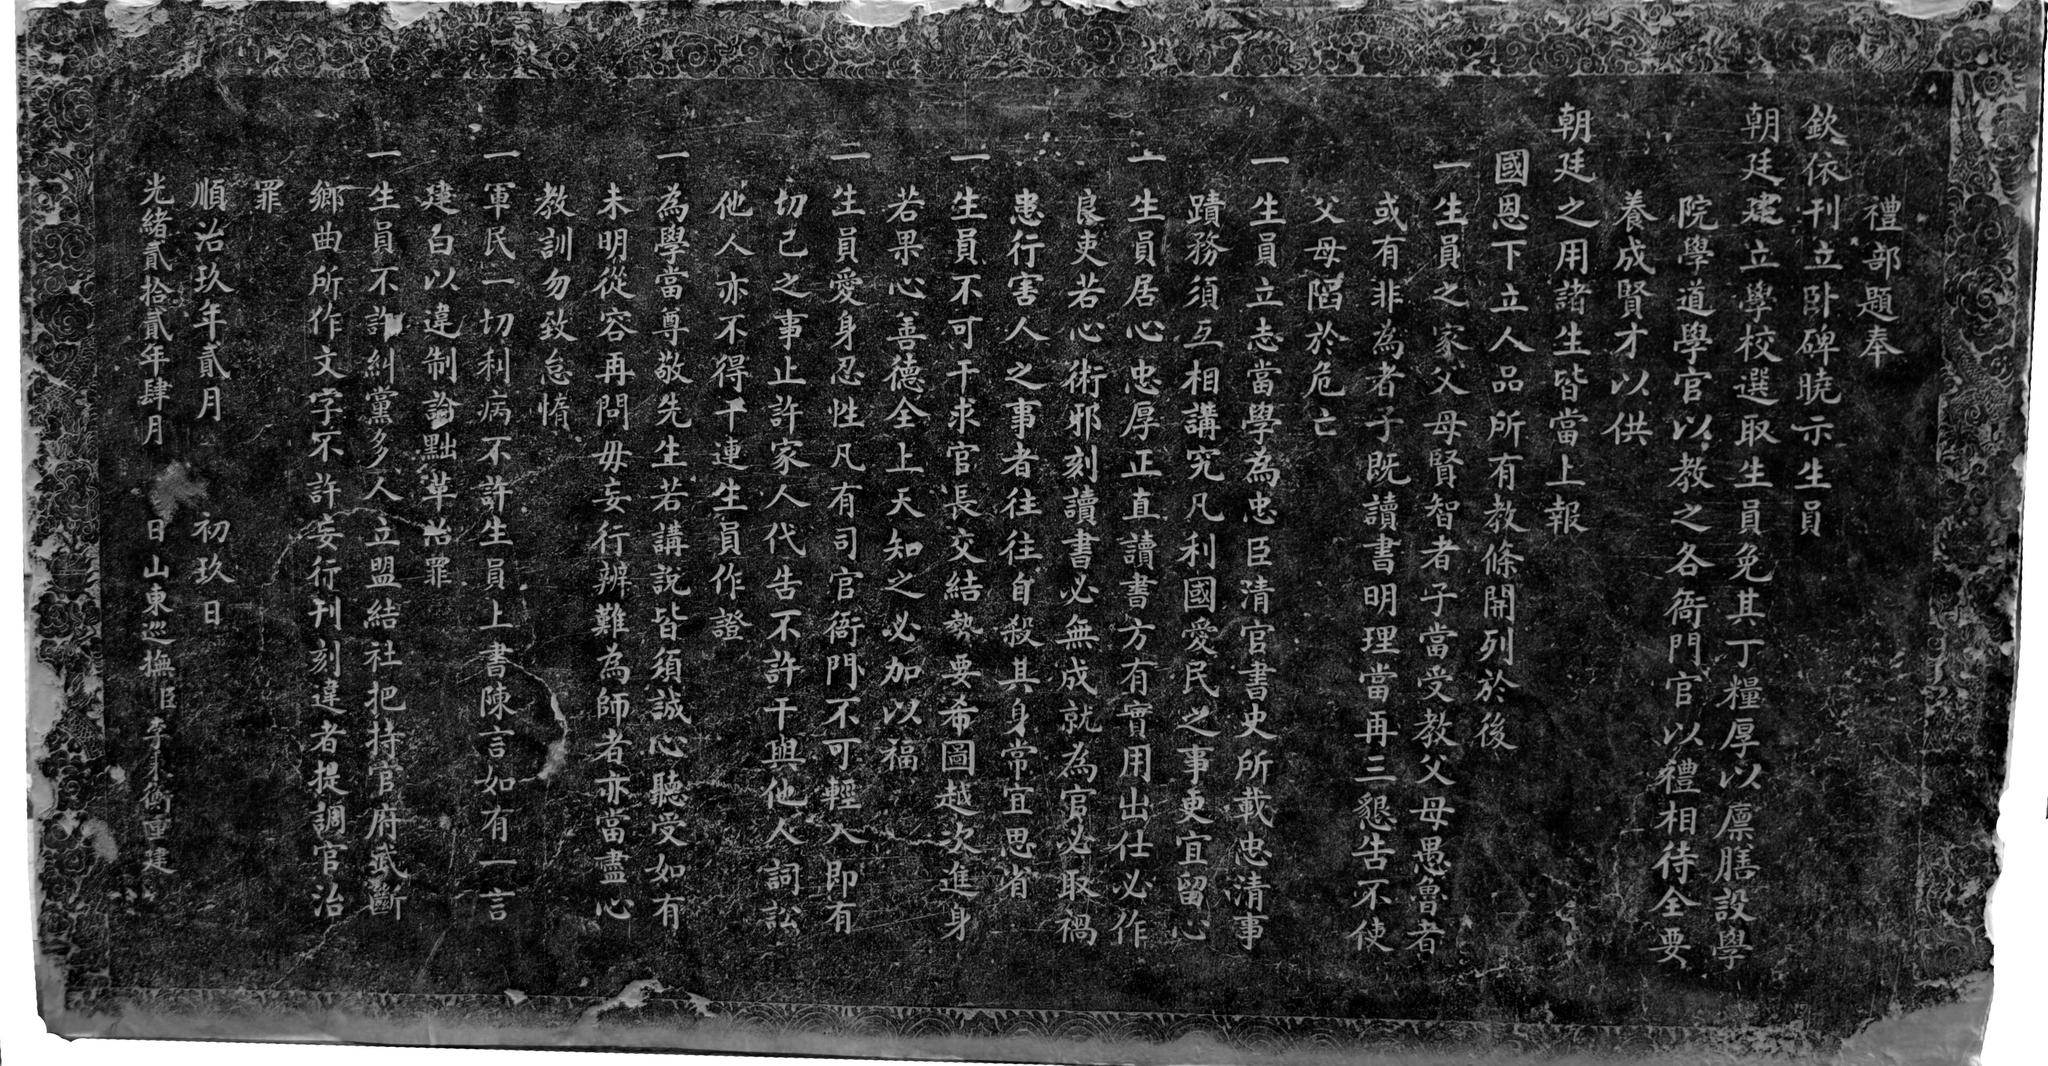 禮部題奉
欽依刊立卧碑曉示生員
朝廷建立學校選取生員免其丁糧厚以廩膳設學
院學道學官以教之各衙門官以禮相待全要
養成賢才以供
朝廷之用諸生皆當上報
國恩下立人品所有教條開列於後
一生員之家父母賢智者子當受教父母愚魯者
或有非為者子既讀書明理當再三懇告不使
父母陷於危亡
一生員立志當學為忠臣清官書史所載忠清事
蹟務須互相講究凡利國愛民之事更宜留心
一生員居心忠厚正直讀書方有實用出仕必作
良吏若心術邪刻讀書必無成就為官必取禍
患行害人之事者往往自殺其身常宜思省
一生員不可干求官長交結勢要希圖越次進身
若果心善德全上天知之必加以福
一生員愛身忍性凡有司官衙門不可輕入即有
切己之事止許家人代告不許干與他人詞訟
他人亦不得干連生員作證
一為學當尊敬先生若講說皆須誠心聽受如有
未明從容再問毋妄行辨難為師者亦當盡心
教訓勿致怠惰
一軍民一切利病不許生員上書陳言如有一言
建白以違制論黜革治罪
一生員不許糾黨多人立盟結社把持官府武斷
鄉曲所作文字不許妄行刊刻違者提調官治
罪
順治玖年貳月 初玖日
光緒貳拾貳年肆月 日山東巡撫臣李秉衡重建